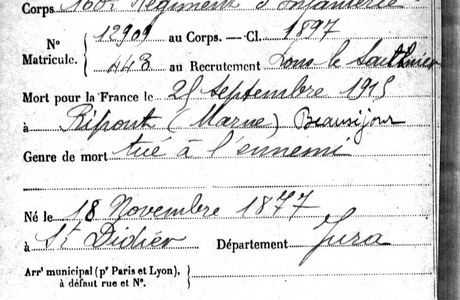 Corps 160e Régiment d'Infanterie
N° Matricule. { 12909 au Corps. — Cl. 1897
443 au Recrutement Lons le Saulnier
Mort pour la France le 25 septembre 1915
à Ripont (Marne) Beauséjour
Genre de mort tué à l'ennemi
Né le 18 Novembre 1877
à St Didier Département Jura
Arrt municipal (pr Paris et Lyon),
à défaut rue et N°.